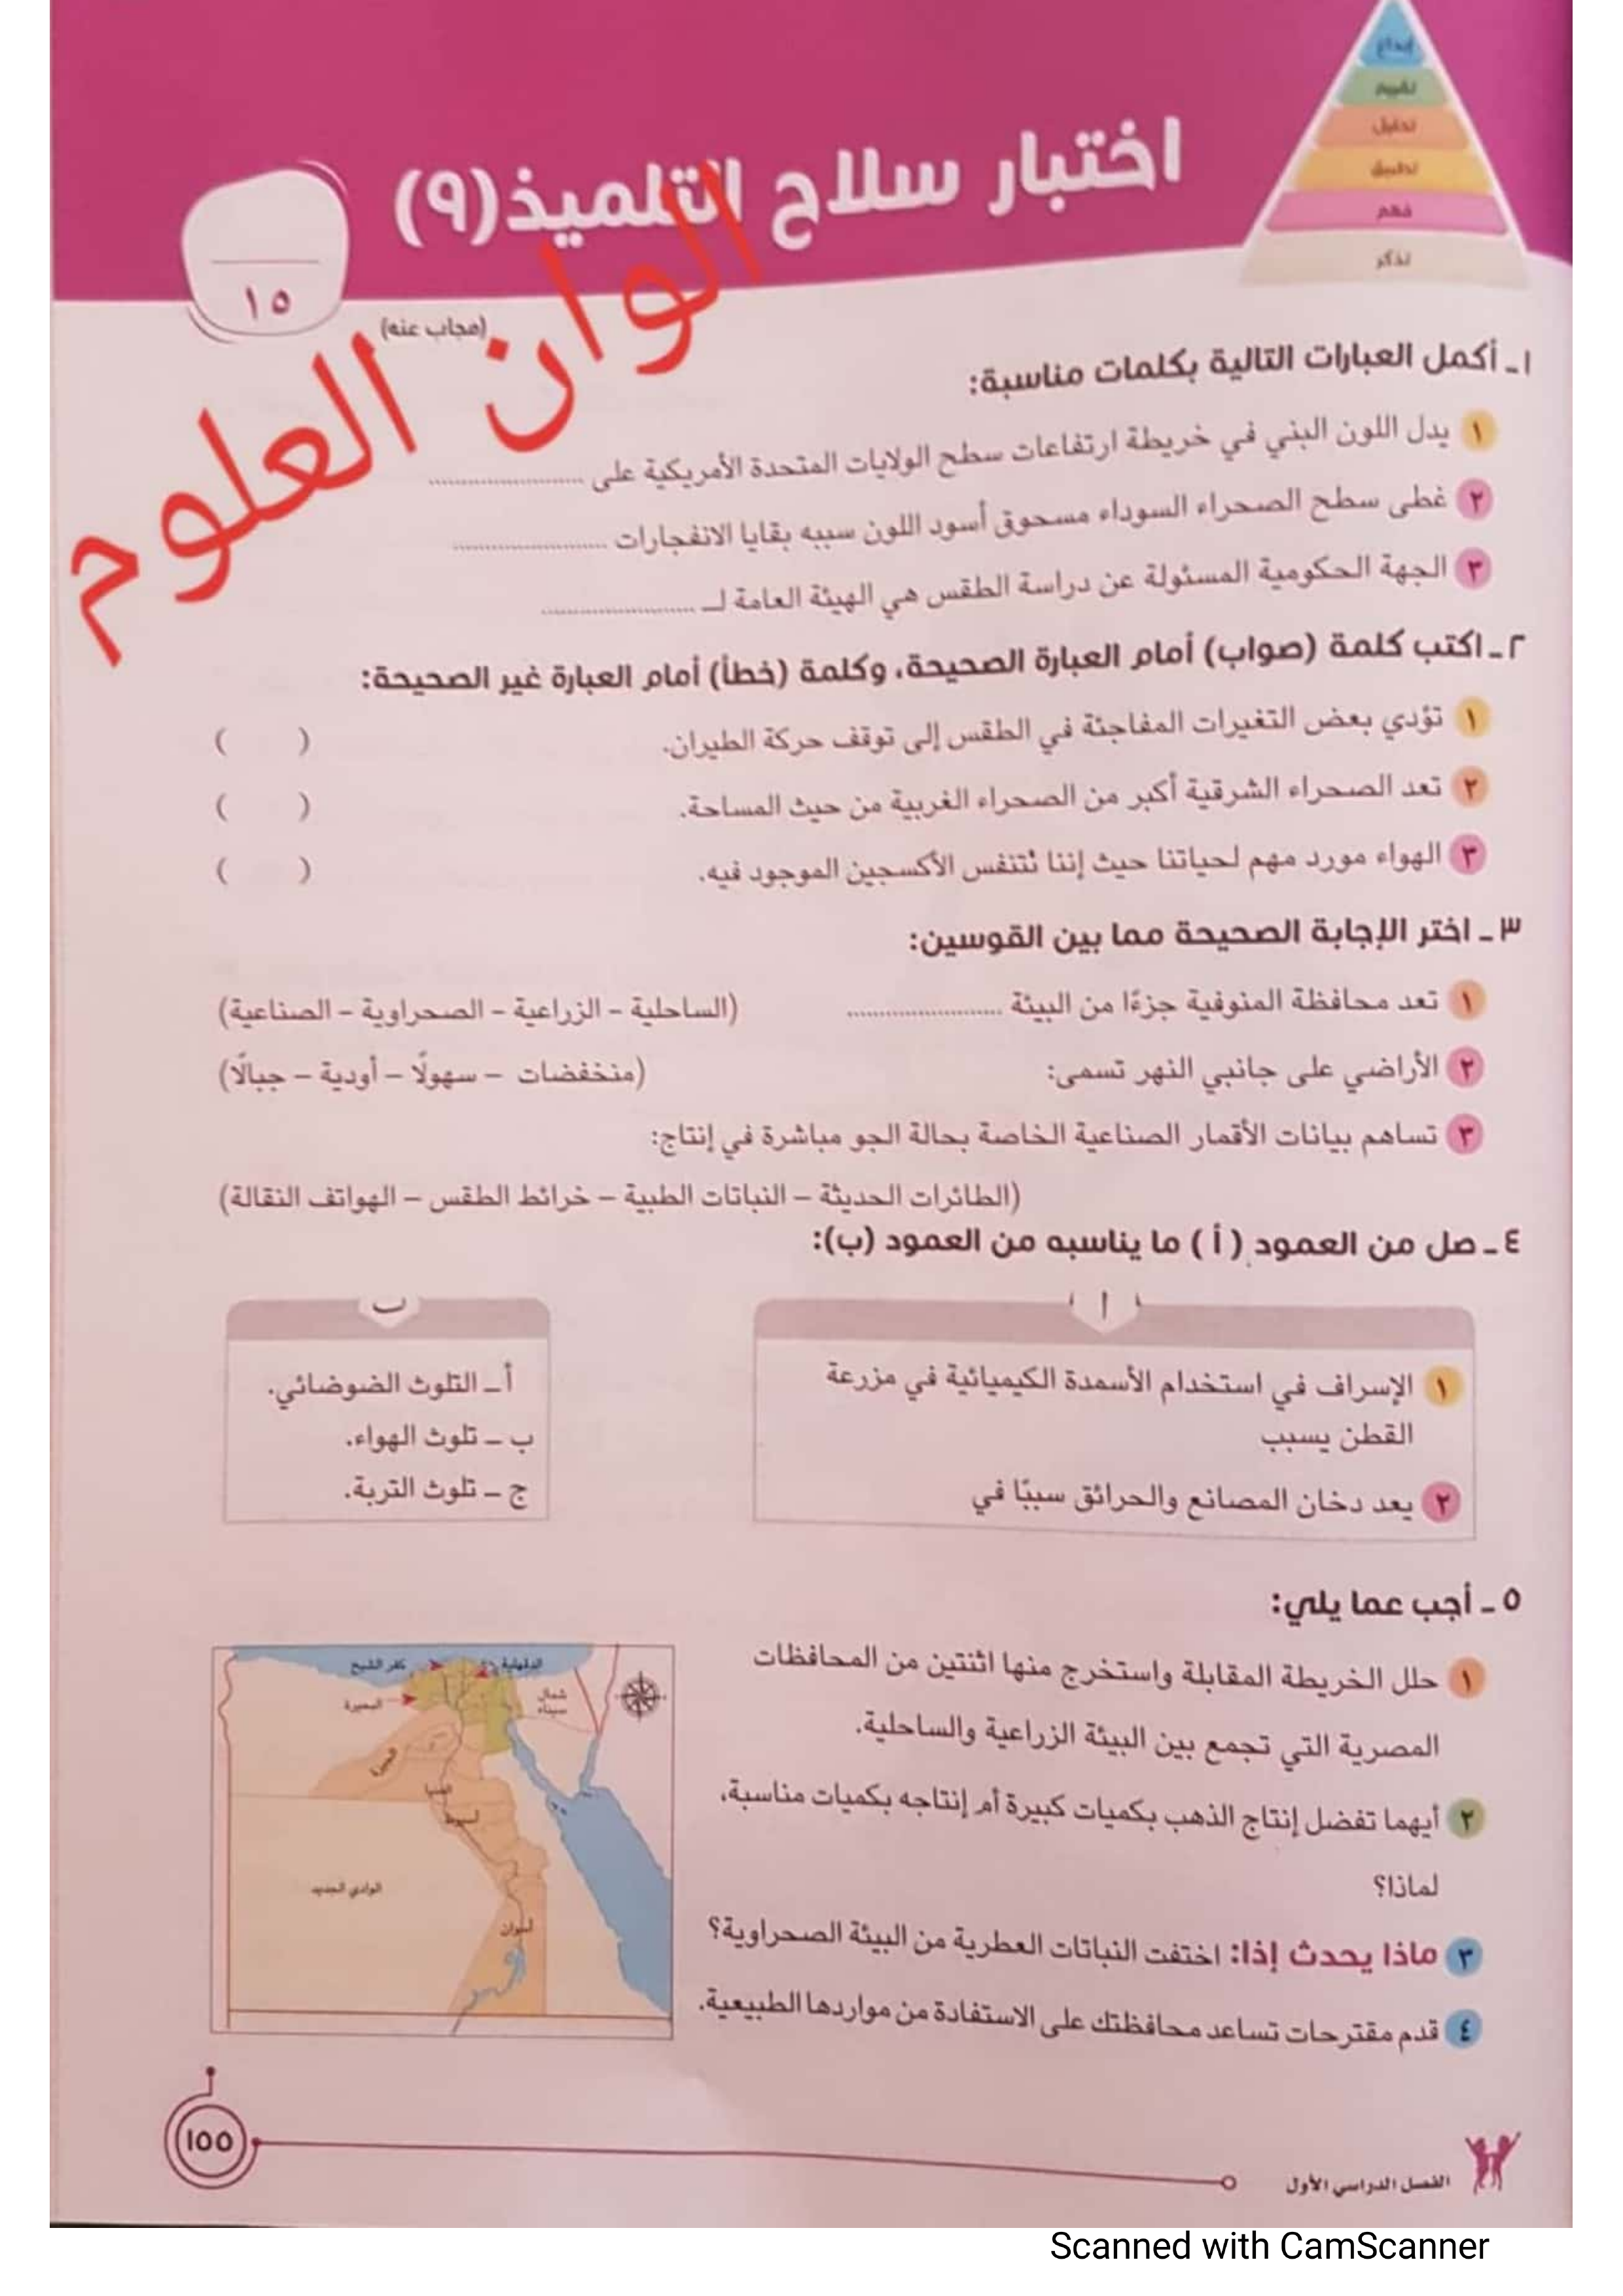 إبداع
تقييم
تحليل
تطبيق
فهم
تذكر
اختبار سلاح التلميذ (٩)
١٥
(مجاب عنه)
الوان العلوم
١ ـ أكمل العبارات التالية بكلمات مناسبة:
١ يدل اللون البني في خريطة ارتفاعات سطح الولايات المتحدة الأمريكية على ........................
٢ غطى سطح الصحراء السوداء مسحوق أسود اللون سببه بقايا الانفجارات ........................
٣ الجهة الحكومية المسئولة عن دراسة الطقس هي الهيئة العامة لـ ........................
٢ ـ اكتب كلمة (صواب) أمام العبارة الصحيحة، وكلمة (خطأ) أمام العبارة غير الصحيحة:
١ تؤدي بعض التغيرات المفاجئة في الطقس إلى توقف حركة الطيران. ( )
٢ تعد الصحراء الشرقية أكبر من الصحراء الغربية من حيث المساحة. ( )
٣ الهواء مورد مهم لحياتنا حيث إننا نتنفس الأكسجين الموجود فيه. ( )
٣ ـ اختر الإجابة الصحيحة مما بين القوسين:
١ تعد محافظة المنوفية جزءًا من البيئة ........................ (الساحلية – الزراعية – الصحراوية – الصناعية)
٢ الأراضي على جانبي النهر تسمى: (منخفضات – سهولًا – أودية – جبالًا)
٣ تساهم بيانات الأقمار الصناعية الخاصة بحالة الجو مباشرة في إنتاج:
(الطائرات الحديثة – النباتات الطبية – خرائط الطقس – الهواتف النقالة)
٤ ـ صل من العمود (أ) ما يناسبه من العمود (ب):
أ
١ الإسراف في استخدام الأسمدة الكيميائية في مزرعة
القطن يسبب
٢ يعد دخان المصانع والحرائق سببًا في
ب
أ ـ التلوث الضوضائي.
ب ـ تلوث الهواء.
ج ـ تلوث التربة.
٥ ـ أجب عما يلي:
١ حلل الخريطة المقابلة واستخرج منها اثنتين من المحافظات
المصرية التي تجمع بين البيئة الزراعية والساحلية.
٢ أيهما تفضل إنتاج الذهب بكميات كبيرة أم إنتاجه بكميات مناسبة،
لماذا؟
٣ ماذا يحدث إذا: اختفت النباتات العطرية من البيئة الصحراوية؟
٤ قدم مقترحات تساعد محافظتك على الاستفادة من مواردها الطبيعية.
الدقهلية
كفر الشيخ
البحيرة
شمال
سيناء
الجيزة
المنيا
أسيوط
الوادي الجديد
أسوان
الفصل الدراسي الأول
١٥٥
Scanned with CamScanner